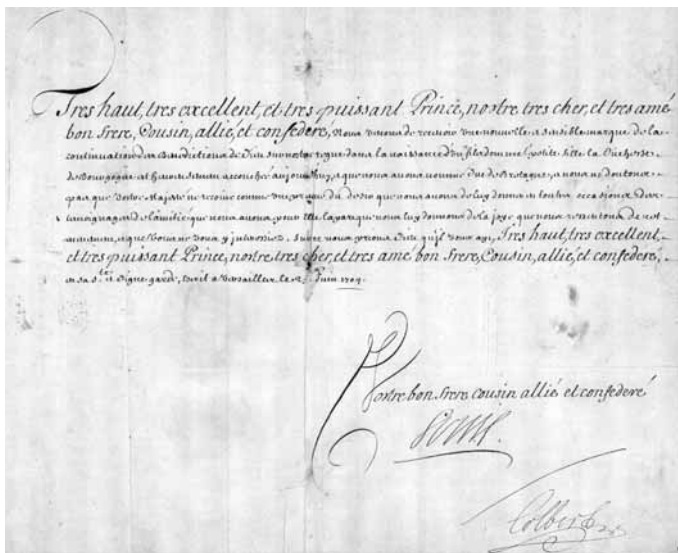 Tres haut, tres excellent, et tres puissant Prince, nostre tres cher, et tres amé
bon frere, Cousin, allié, et confederé, Nous venons de recevoir une nouvelle et sensible marque de la
continuation des Benedictions de Dieu sur nostre regne dans la naissance d'un fils dont nostre petite fille la Duchesse
de Bourgogne est heureusement accouchée aujourd'huy, que nous avons nommé Duc de Bretagne,
pas que Vostre Majesté ne recoive comme du desir que nous avons de luy donner en toutes occasions des
tesmoignages de l'amitié que nous avons pour Elle la part que nous luy donnons de la joye que nous
Sur ce nous prions Dieu qu'il vous ayt, Tres haut, tres excellent,
et tres puissant Prince, nostre tres cher, et tres amé bon frere, Cousin, allié, et confederé,
en sa s.te et digne garde, Escrit a Versailles le Juin 1704.
Vostre bon frere cousin allié et confederé
Louis.
Colbert